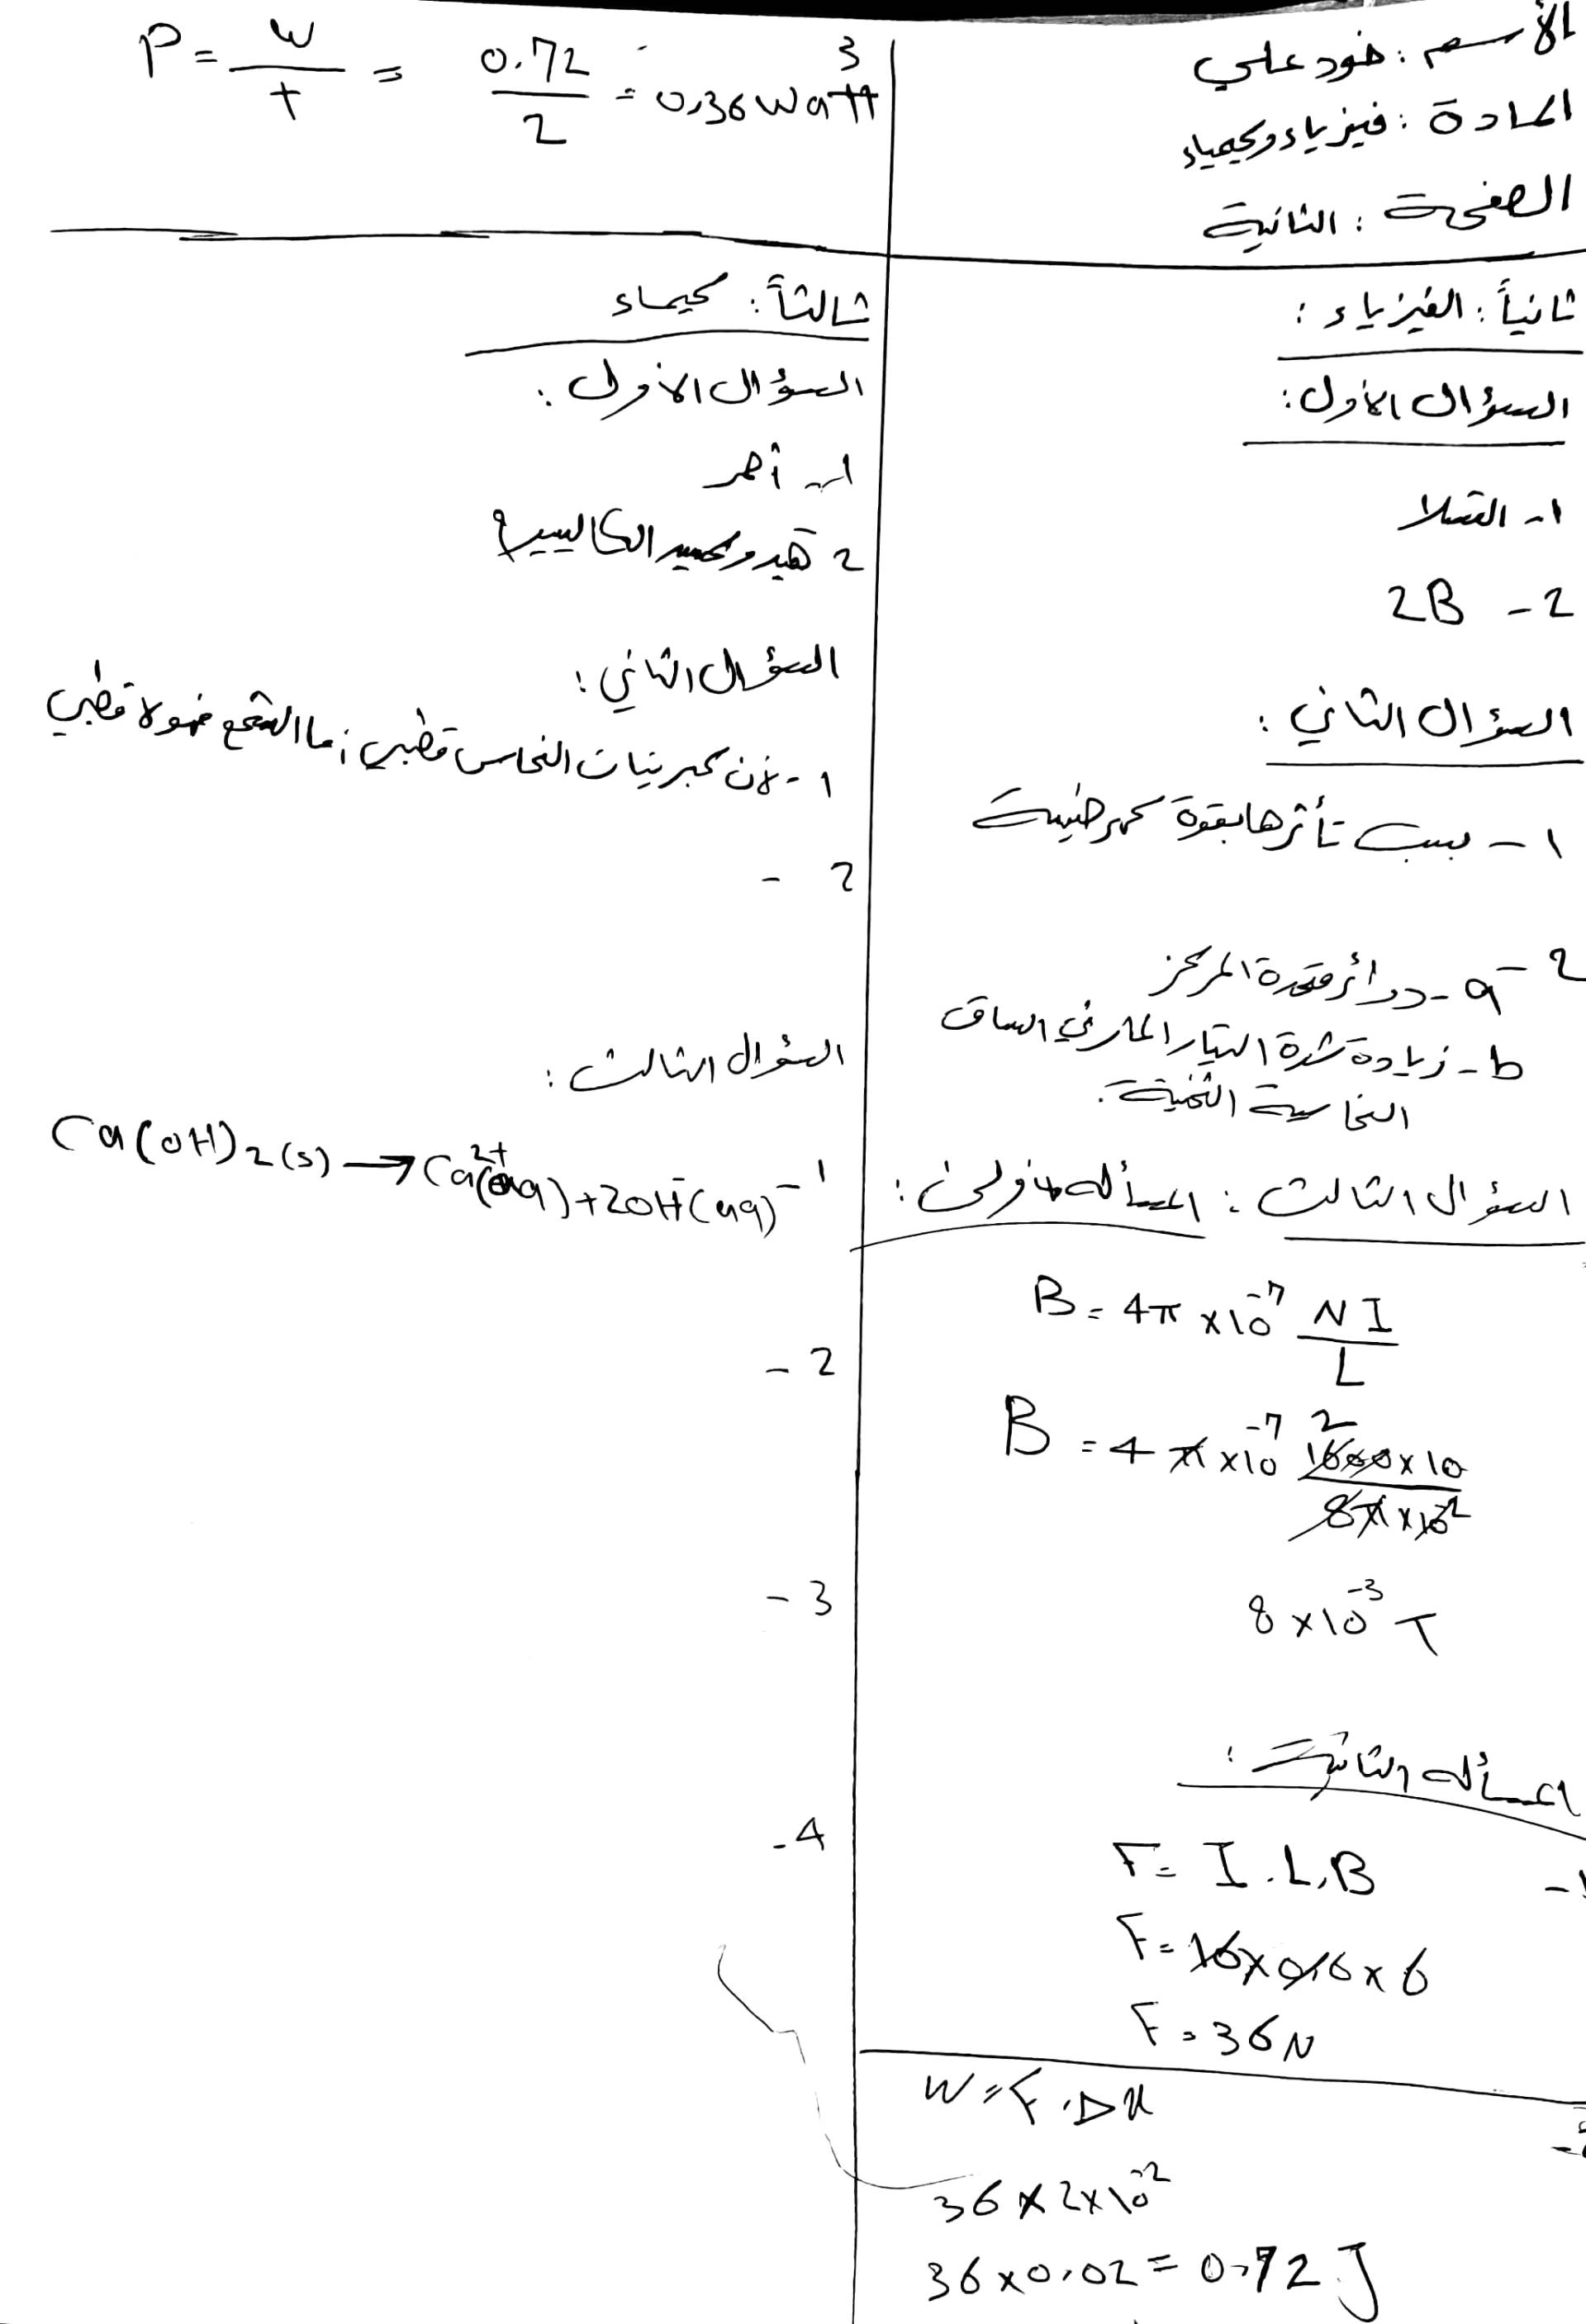 الأسم : خود علي
المادة : فيزياء وكيمياء
الصفحة : الثانية
ثانياً : الفيزياء :
السؤال الأول :
1- التسلا
2- 2B
السؤال الثاني :
1- بسبب تأثرها بقوة كهرطيسية
2- a- دوائر متحدة المركز
b- زيادة شدة التيار المار في الساق
النحاسية الثخينة .
السؤال الثالث : المسألة الأولى :
B = 4π × 10⁻⁷ NI/L
B = 4π × 10⁻⁷ 2 1600 × 10 / 8π × 10⁻²
8 × 10⁻³ T
المسألة الثانية :
1- F = I.L.B
F = 10 × 0.6 × 6
F = 36 N
2- W = F . Δx
36 × 2 × 10⁻²
36 × 0.02 = 0.72 J
3
P = W/t = 0.72/2 = 0.36 Watt
ثالثاً : كيمياء
السؤال الأول :
1- أحمر
2 هيدروكسيد الكالسيوم
السؤال الثاني :
1- لأن كبريتات النحاس قطبي أما الشمع فهو لا قطبي
2 -
السؤال الثالث :
1- Ca(OH)₂(s) → Ca²⁺(aq) + 2OH⁻(aq)
2 -
3 -
4 -